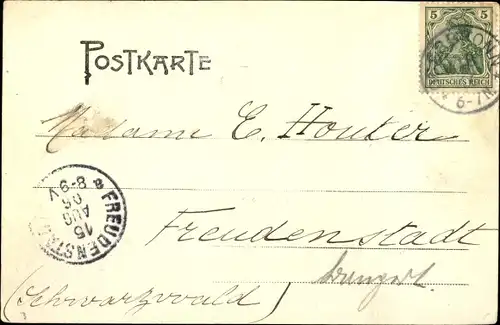 POSTKARTE
5 5
DEUTSCHES REICH
6-7N
Madame C. Houter
FREUDENSTADT
15
AUG
06
8-9V
a
Freudenstadt
(Schwarzwald)